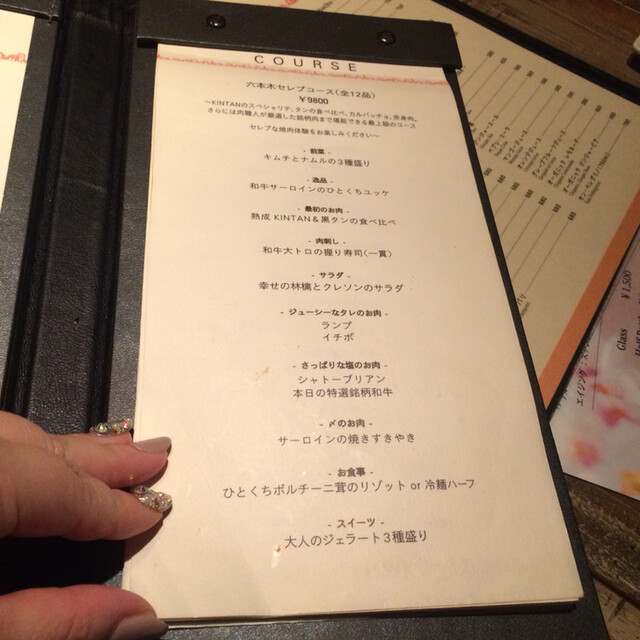 COURSE
六本木セレブコース(全12品)
¥9800
～KINTANのスペシャリテ、タンの食べ比べ、カルパッチョ、赤身肉、
さらには肉職人が厳選した銘柄肉まで堪能できる最上級のコース
セレブな焼肉体験をお楽しみください～
- 前菜 -
キムチとナムルの3種盛り
- 逸品 -
和牛サーロインのひとくちユッケ
- 最初のお肉 -
熟成 KINTAN＆黒タンの食べ比べ
- 肉刺し -
和牛大トロの握り寿司(一貫)
- サラダ -
幸せの林檎とクレソンのサラダ
- ジューシーなタレのお肉 -
ランプ
イチボ
- さっぱりな塩のお肉 -
シャトーブリアン
本日の特選銘柄和牛
- 〆のお肉 -
サーロインの焼きすきやき
- お食事 -
ひとくちポルチーニ茸のリゾット or 冷麺ハーフ
- スイーツ -
大人のジェラート3種盛り
¥1,500
Glass